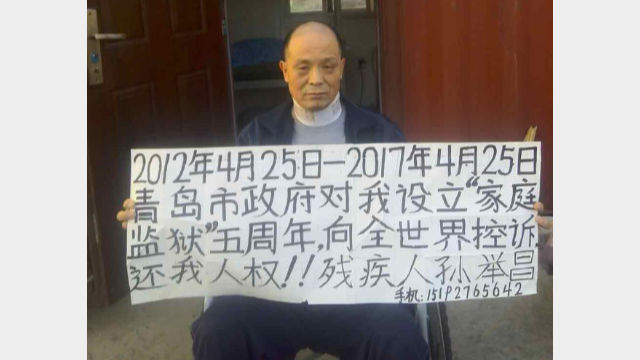 2012年4月25日—2017年4月25日
青岛市政府对我设立“家庭
监狱”五周年,向全世界控诉
还我人权!!残疾人孙举昌
手机:15192765642